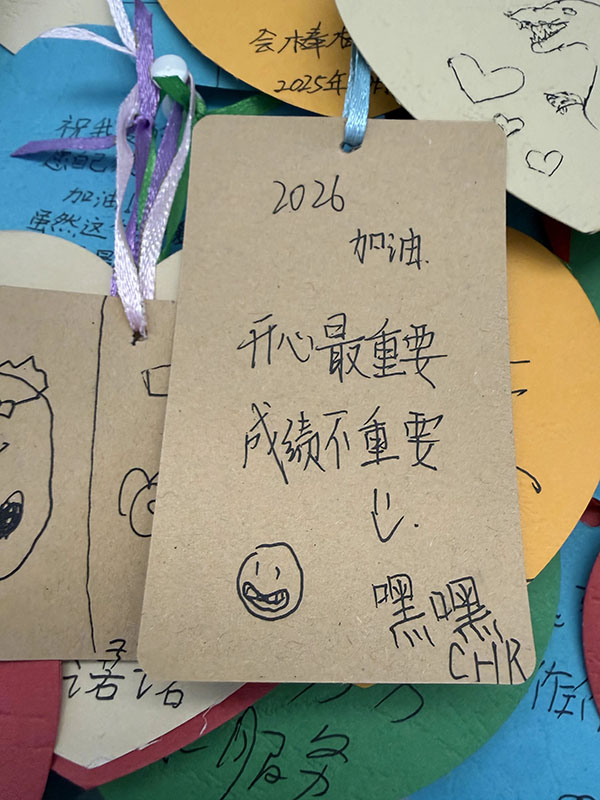 会棒棒
2025年
祝我
加油！
虽然这
2026
加油.
开心最重要
成绩不重要
嘿嘿
CHR
诺诺
服务